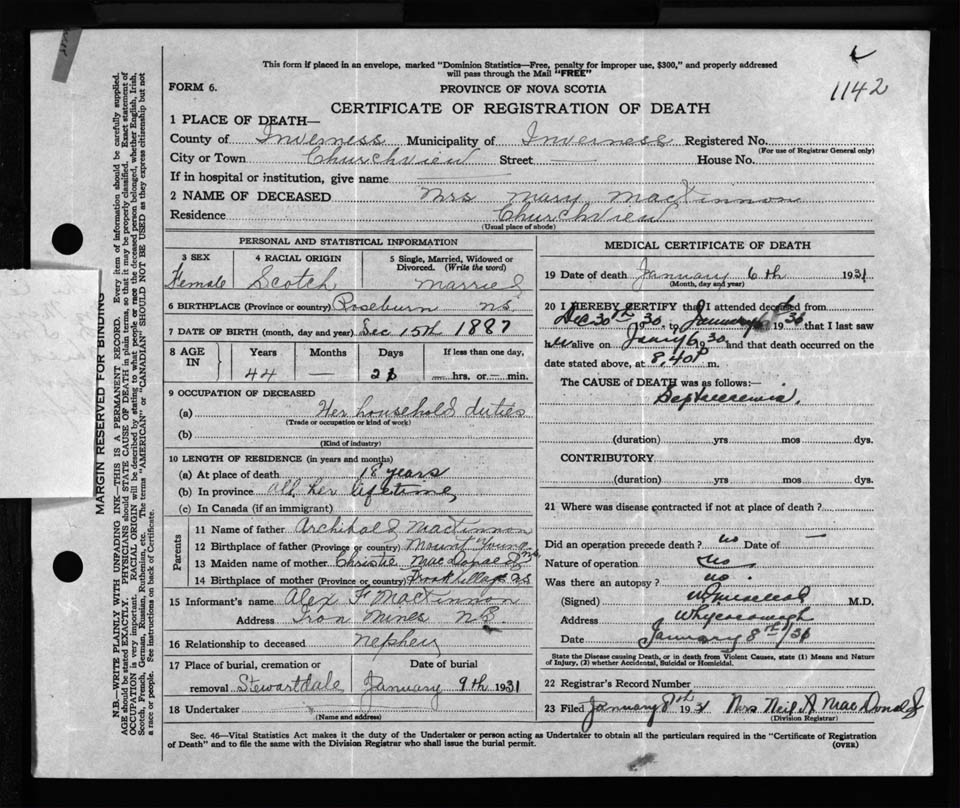 This form if placed in an envelope, marked "Dominion Statistics—Free, penalty for improper use, $300," and properly addressed
will pass through the Mail "FREE"
1142
FORM 6.
PROVINCE OF NOVA SCOTIA
CERTIFICATE OF REGISTRATION OF DEATH
1 PLACE OF DEATH—
County of Inverness Municipality of Inverness Registered No.
(For use of Registrar General only)
City or Town Churchview Street — House No.
If in hospital or institution, give name —
2 NAME OF DECEASED Mrs Mary MacKinnon
Residence Churchview
(Usual place of abode)
PERSONAL AND STATISTICAL INFORMATION
3 SEX 4 RACIAL ORIGIN 5 Single, Married, Widowed or
Divorced. (Write the word)
Female Scotch Married
6 BIRTHPLACE (Province or country) Roseburn NS
7 DATE OF BIRTH (month, day and year) Dec 15th 1887
8 AGE IN Years Months Days If less than one day,
44 — — hrs. or — min.
9 OCCUPATION OF DECEASED
(a) Her household duties
(Trade or occupation or kind of work)
(b)
(Kind of industry)
10 LENGTH OF RESIDENCE (in years and months)
(a) At place of death 18 years
(b) In province all her lifetime
(c) In Canada (if an immigrant)
Parents
11 Name of father Archibald MacKinnon
12 Birthplace of father (Province or country) Mount Young
13 Maiden name of mother Christie MacDonald
14 Birthplace of mother (Province or country)
15 Informant's name Alex F MacKinnon
Address Iron Mines N.S.
16 Relationship to deceased Nephew
17 Place of burial, cremation or Date of burial
removal Stewartdale January 9th 1931
18 Undertaker
(Name and address)
MEDICAL CERTIFICATE OF DEATH
19 Date of death January 6th 1931
(Month, day and year)
20 I HEREBY CERTIFY that I attended deceased from
Dec 30th 1930 to January 19 that I last saw
her alive on and that death occurred on the
date stated above, at 8.40 P m.
The CAUSE of DEATH was as follows:—
Septicaemia.
(duration) yrs mos dys.
CONTRIBUTORY
(duration) yrs mos dys.
21 Where was disease contracted if not at place of death?
Did an operation precede death? no Date of —
Nature of operation no
Was there an autopsy? no.
(Signed) M.D.
Address Whycocomagh
Date January 8th/31
State the Disease causing Death, or in death from Violent Causes, state (1) Means and Nature
of Injury, (2) whether Accidental, Suicidal or Homicidal.
22 Registrar's Record Number
23 Filed January 8th 1931 Mrs Neil A MacDonald
(Division Registrar)
Sec. 46—Vital Statistics Act makes it the duty of the Undertaker or person acting as Undertaker to obtain all the particulars required in the "Certificate of Registration
of Death" and to file the same with the Division Registrar who shall issue the burial permit.
(OVER)
MARGIN RESERVED FOR BINDING
N.B.—WRITE PLAINLY WITH UNFADING INK—THIS IS A PERMANENT RECORD. Every item of information should be carefully supplied.
AGE should be stated EXACTLY. PHYSICIANS should STATE CAUSE OF DEATH in plain terms, so that it may be properly classified. Exact statement of
OCCUPATION is very important. RACIAL ORIGIN will be described by stating to what people or race the deceased person belonged, whether English, Irish,
Scotch, French, German, Russian, Ruthenian, etc. The terms "AMERICAN" or "CANADIAN" SHOULD NOT BE USED as they express citizenship but not
a race or people. See instructions on back of Certificate.